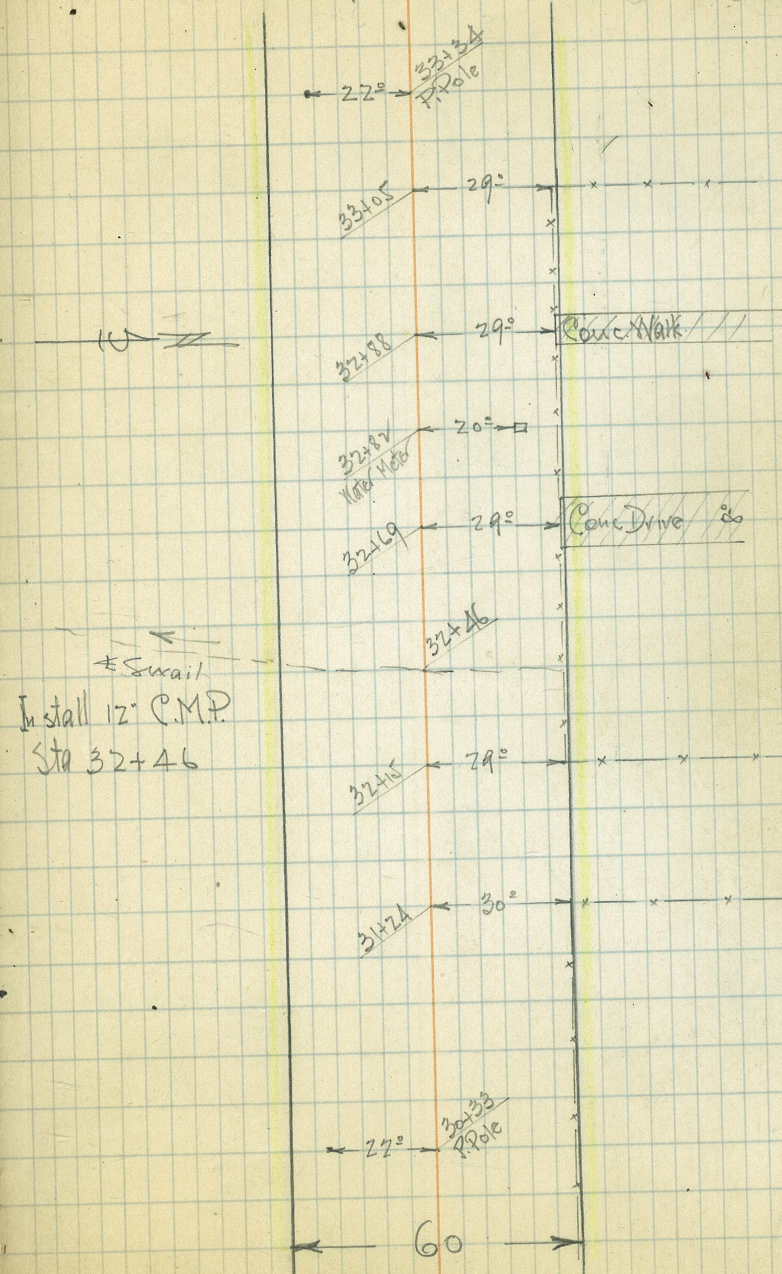 33+34
P. Pole
22°
33+05
29°
N
32+88
29°
Conc. Walk
32+82
Water Meter
20°
32+69
29°
Conc Drive
32+46
Swail
Install 12" C.M.P.
Sta 32+46
32+15
29°
31+24
30°
30+33
P. Pole
22°
60